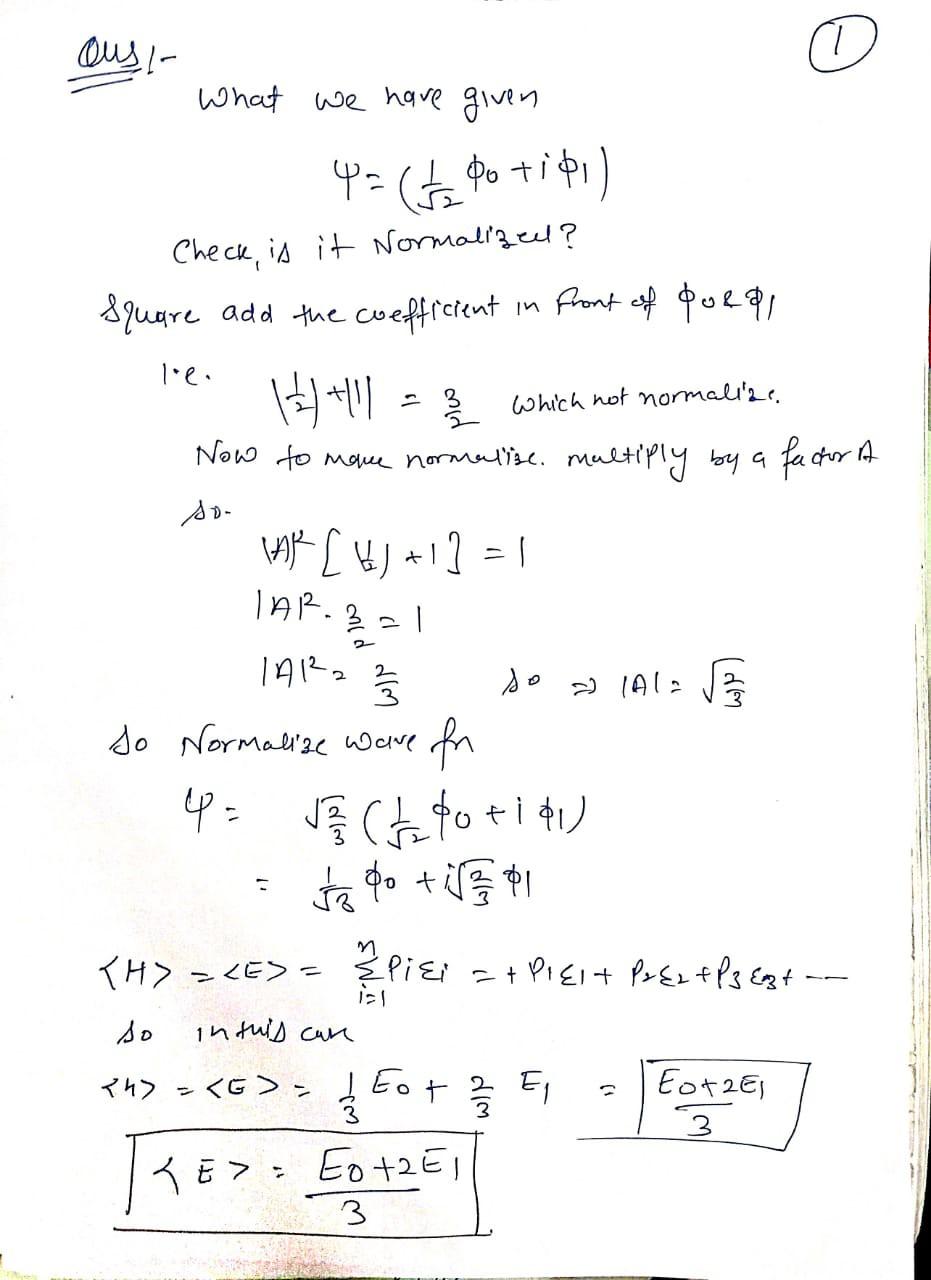 Ous!-
①
What we have given
ψ = (1/√2 ϕ0 + i ϕ1)
Check, is it Normalized?
Square add the coefficient in front of ϕ0 & ϕ1
i.e. |1/2| + |1| = 3/2 which not normalize.
Now to make normalise. multiply by a factor A
so-
|A|² [(1/2) + 1] = 1
|A|². 3/2 = 1
|A|² = 2/3 so ⇒ |A| = √2/3
So Normalize wave fn
ψ = √2/3 (1/√2 ϕ0 + i ϕ1)
= 1/√3 ϕ0 + i√2/3 ϕ1
<H> = <E> = n Σ i=1 PiEi = + P1E1 + P2E2 + P3E3 + --
so in this case
<H> = <E> = 1/3 E0 + 2/3 E1 = E0+2E1/3
<E> = E0+2E1/3